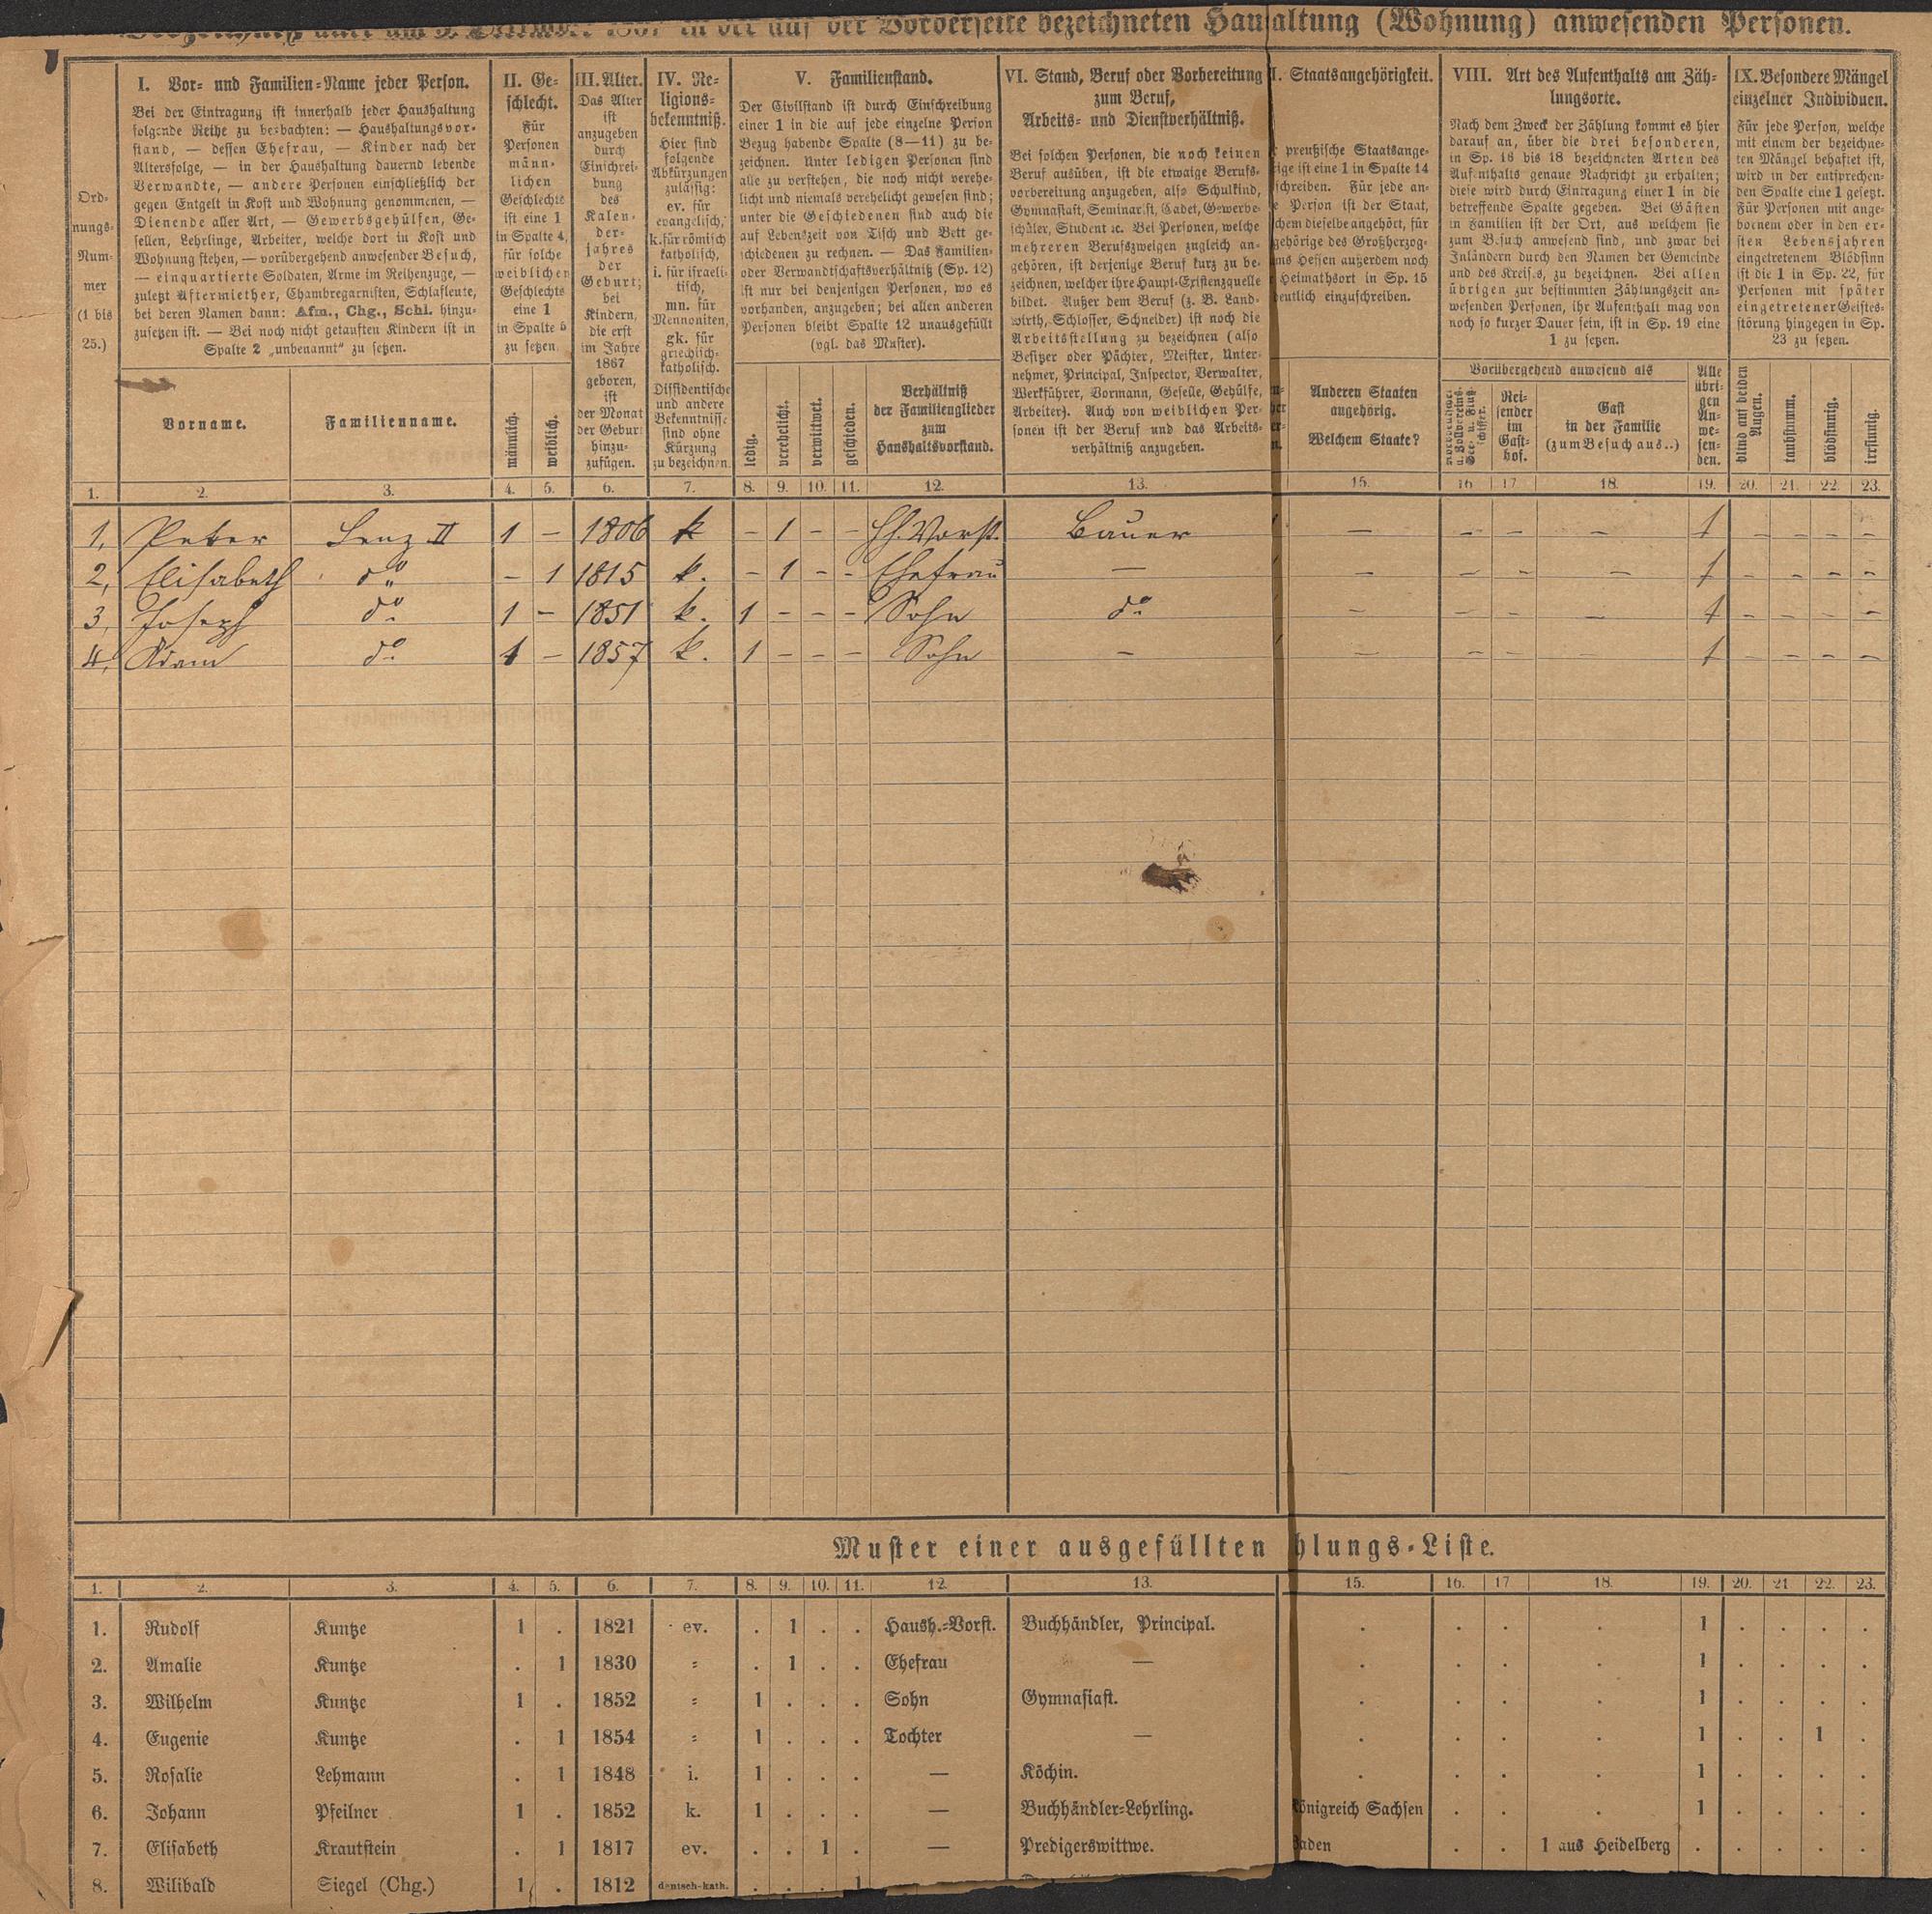 in der auf der Vorderseite bezeichneten Hau altung (Wohnung) anwesenden Personen.
Ord-
nungs-
Num-
mer
(1 bis
25.)
I. Vor- und Familien-Name jeder Person.
Bei der Eintragung ist innerhalb jeder Haushaltung
folgende Reihe zu beobachten: — Haushaltungsvor-
stand, — dessen Ehefrau, — Kinder nach der
Altersfolge, — in der Haushaltung dauernd lebende
Verwandte, — andere Personen einschließlich der
gegen Entgelt in Kost und Wohnung genommenen, —
Dienende aller Art, — Gewerbsgehülfen, Ge-
sellen, Lehrlinge, Arbeiter, welche dort in Kost und
Wohnung stehen, — vorübergehend anwesender Besuch,
— einquartierte Soldaten, Arme im Reihenzuge, —
zuletzt Aftermiether, Chambregarnisten, Schlafleute,
bei deren Namen dann: Afm., Chg., Schl. hinzu-
zusetzen ist. — Bei noch nicht getauften Kindern ist in
Spalte 2 „unbenannt“ zu setzen.
Vorname.
Familienname.
II. Ge-
schlecht.
Für
Personen
männ-
lichen
Geschlechts
ist eine 1
in Spalte 4,
für solche
weiblichen
Geschlechts
eine 1
in Spalte 5
zu setzen.
männlich.
weiblich.
III. Alter.
Das Alter
ist
anzugeben
durch
Einschrei-
bung
des
Kalen-
der-
jahres
der
Geburt;
bei
Kindern,
die erst
im Jahre
1867
geboren,
ist
der Monat
der Geburt
hinzu-
zufügen.
IV. Re-
ligions-
bekenntniß.
Hier sind
folgende
Abkürzungen
zulässig:
ev. für
evangelisch,
k. für römisch
katholisch,
i. für israeli-
tisch,
mn. für
Mennoniten,
gk. für
griechisch-
katholisch.
Dissidentische
und andere
Bekenntnisse
sind ohne
Kürzung
zu bezeichnen.
V. Familienstand.
Der Civilstand ist durch Einschreibung
einer 1 in die auf jede einzelne Person
Bezug habende Spalte (8—11) zu be-
zeichnen. Unter ledigen Personen sind
alle zu verstehen, die noch nicht verehe-
licht und niemals verehelicht gewesen sind;
unter die Geschiedenen sind auch die
auf Lebenszeit von Tisch und Bett ge-
schiedenen zu rechnen. — Das Familien-
oder Verwandtschaftsverhältniß (Sp. 12)
ist nur bei denjenigen Personen, wo es
vorhanden, anzugeben; bei allen anderen
Personen bleibt Spalte 12 unausgefüllt
(vgl. das Muster).
ledig.
verehelicht.
verwittwet.
geschieden.
Verhältniß
der Familienglieder
zum
Haushaltsvorstand.
VI. Stand, Beruf oder Vorbereitung
zum Beruf,
Arbeits- und Dienstverhältniß.
Bei solchen Personen, die noch keinen
Beruf ausüben, ist die etwaige Berufs-
vorbereitung anzugeben, also Schulkind,
Gymnasiast, Seminarist, Cadet, Gewerbe-
schüler, Student ꝛc. Bei Personen, welche
mehreren Berufszweigen zugleich an-
gehören, ist derjenige Beruf kurz zu be-
zeichnen, welcher ihre Haupt-Existenzquelle
bildet. Außer dem Beruf (z. B. Land-
wirth, Schlosser, Schneider) ist noch die
Arbeitsstellung zu bezeichnen (also
Besitzer oder Pächter, Meister, Unter-
nehmer, Principal, Inspector, Verwalter,
Werkführer, Vormann, Geselle, Gehülfe,
Arbeiter). Auch von weiblichen Per-
sonen ist der Beruf und das Arbeits-
verhältniß anzugeben.
I. Staatsangehörigkeit.
preußische Staatsange-
ige ist eine 1 in Spalte 14
schreiben. Für jede an-
e Person ist der Staat,
chem dieselbe angehört, für
gehörige des Großherzog-
ms Hessen außerdem noch
Heimathsort in Sp. 15
deutlich einzuschreiben.
Anderen Staaten
angehörig.
Welchem Staate?
VIII. Art des Aufenthalts am Zäh-
lungsorte.
Nach dem Zweck der Zählung kommt es hier
darauf an, über die drei besonderen,
in Sp. 16 bis 18 bezeichneten Arten des
Aufenthalts genaue Nachricht zu erhalten;
diese wird durch Eintragung einer 1 in die
betreffende Spalte gegeben. Bei Gästen
in Familien ist der Ort, aus welchem sie
zum Besuch anwesend sind, und zwar bei
Inländern durch den Namen der Gemeinde
und des Kreises, zu bezeichnen. Bei allen
übrigen zur bestimmten Zählungszeit an-
wesenden Personen, ihr Aufenthalt mag von
noch so kurzer Dauer sein, ist in Sp. 19 eine
1 zu setzen.
Vorübergehend anwesend als
Rei-
sender
im
Gast-
hof.
Gast
in der Familie
(zum Besuch aus..)
Alle
übri-
gen
An-
we-
sen-
den.
IX. Besondere Mängel
einzelner Individuen.
Für jede Person, welche
mit einem der bezeichne-
ten Mängel behaftet ist,
wird in der entsprechen-
den Spalte eine 1 gesetzt.
Für Personen mit ange-
bornem oder in den er-
sten Lebensjahren
eingetretenem Blödsinn
ist die 1 in Sp. 22, für
Personen mit später
eingetretener Geistes-
störung hingegen in Sp.
23 zu setzen.
blind auf beiden
Augen.
taubstumm.
blödsinnig.
irrsinnig.
1. 2. 3. 4. 5. 6. 7. 8. 9. 10. 11. 12. 13. 15. 16 17. 18. 19. 20. 21. 22. 23.
1, Peter Lenz II 1 – 1806 k – 1 – – Hh. Vorst. Bauer — – – – 1 – – – –
2, Elisabeth do – 1 1815 k. – 1 – – Ehefrau — — – – — 1 – – – –
3, Joseph do 1 – 1851 k. 1 – – – Sohn do — – – – 1 – – – –
4, Adam do 1 – 1857 k. 1 – – – Sohn – — – – – 1 – – – –
Muster einer ausgefüllten hlungs-Liste.
1. 2. 3. 4. 5. 6. 7. 8. 9. 10. 11. 12. 13. 15. 16. 17 18. 19. 20. 21 22. 23.
1. Rudolf Kuntze 1 . 1821 ev. . 1 . . Haush.-Vorst. Buchhändler, Principal. . . . . 1 . . . .
2. Amalie Kuntze . 1 1830 = . 1 . . Ehefrau — . . . . 1 . . . .
3. Wilhelm Kuntze 1 . 1852 = 1 . . . Sohn Gymnasiast. . . . . 1 . . . .
4. Eugenie Kuntze . 1 1854 = 1 . . . Tochter — . . . . 1 . . 1 .
5. Rosalie Lehmann . 1 1848 i. 1 . . . — Köchin. . . . . 1 . . . .
6. Johann Pfeilner 1 . 1852 k. 1 . . . — Buchhändler-Lehrling. königreich Sachsen . . . 1 . . . .
7. Elisabeth Krautstein . 1 1817 ev. . . 1 . — Predigerswittwe. aden . . 1 aus Heidelberg . . . . .
8. Wilibald Siegel (Chg.) 1 . 1812 deutsch-kath. . . . 1